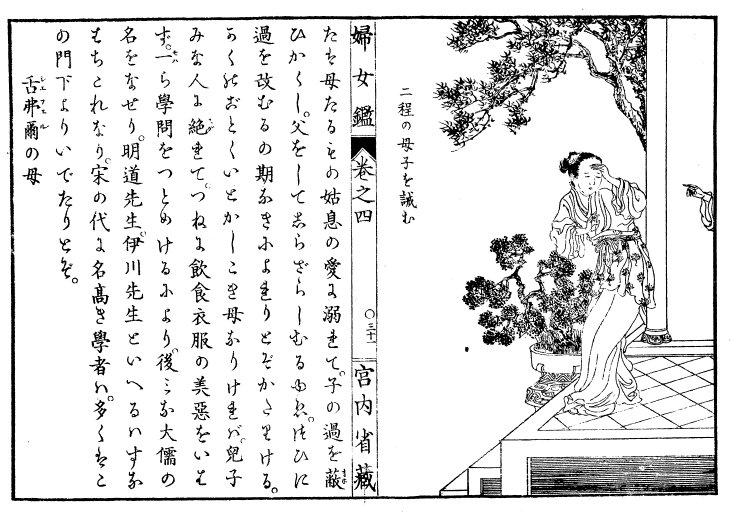 二程の母子を誡む
婦女鑑 巻之四 ○三十一 宮内省藏
母たるもの姑息の愛に溺れて。子の過を蔽
ひかくし。父をしてしらざらしむるゆゑ。つひに
過を改むるの期なきによれりとぞかたりける。
かくのごとくいとかしこき母なりければ。兒子
みな人に絶れて。つねに飲食衣服の美惡をいは
ず。一ら學問をつとめけるにより。後みな大儒の
名をなせり。明道先生伊川先生といへるはすな
はちこれなり。宋の代に名高き學者は。多くはこ
の門下よりいでたりとぞ。
舌弗爾の母